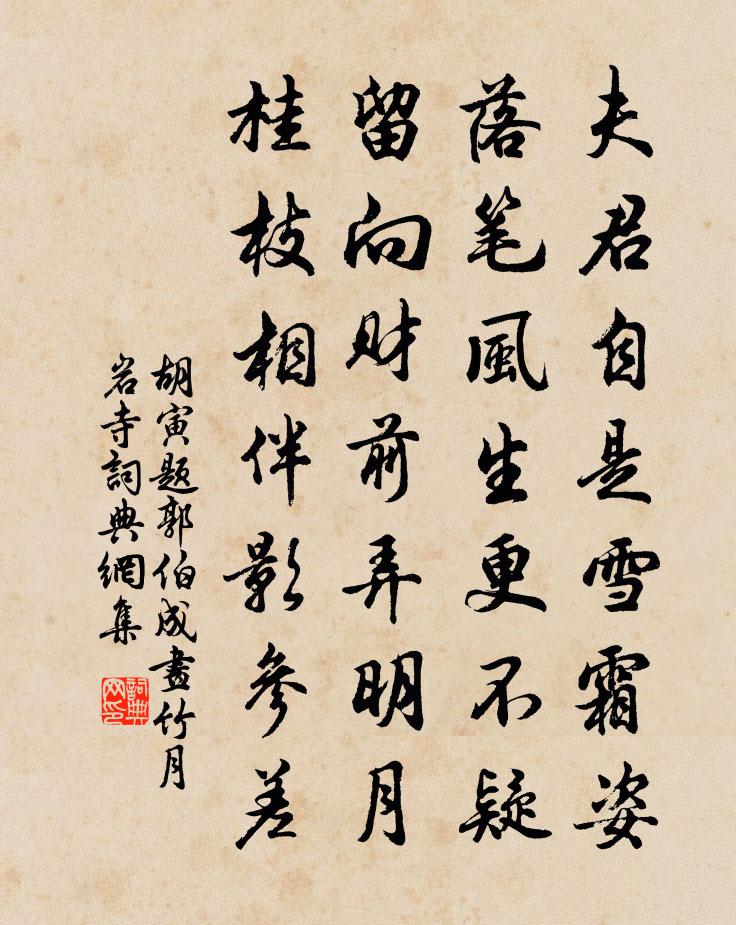 夫君自是雪霜姿
落笔風生更不疑
留向财前弄明月
桂枝相伴影參差
胡寅題郭伯成畫竹月
岩寺詞典網集
詞典网印